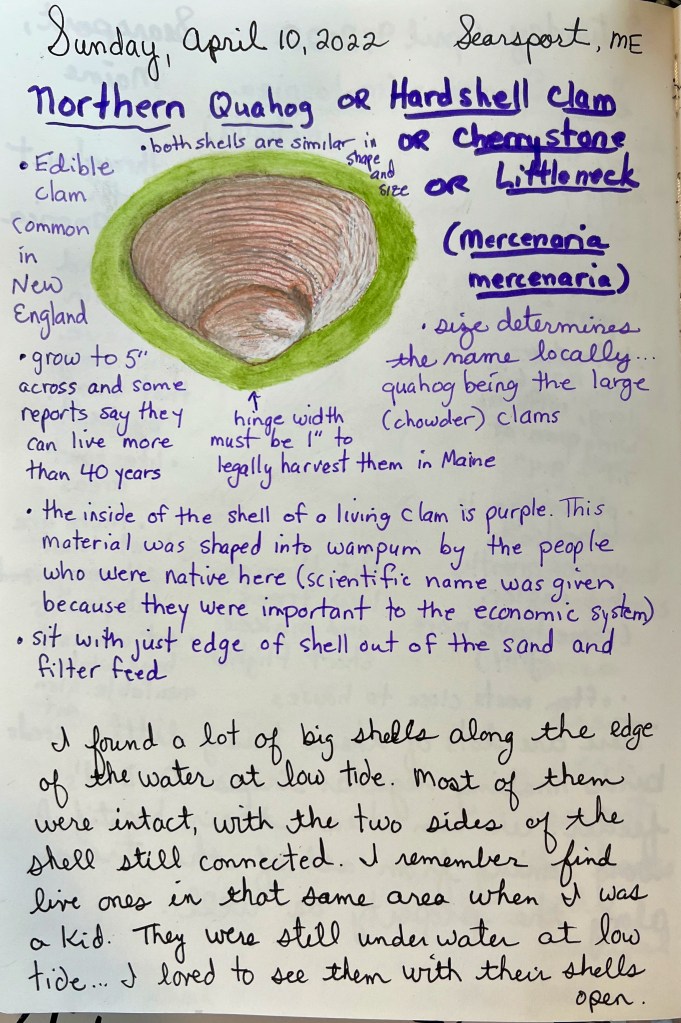 Sunday, April 10, 2022 Searsport, ME
Northern Quahog OR Hardshell Clam
OR Cherrystone
OR Littleneck
(Mercenaria
mercenaria)
• both shells are similar in
shape
and
size
• Edible
clam
common
in
New
England
• grow to 5"
across and some
reports say they
can live more
than 40 years
↑
hinge width
must be 1" to
legally harvest them in Maine
• size determines
the name locally...
quahog being the large
(chowder) clams
• the inside of the shell of a living clam is purple. This
material was shaped into wampum by the people
who were native here (scientific name was given
because they were important to the economic system)
• sit with just edge of shell out of the sand and
filter feed
I found a lot of big shells along the edge
of the water at low tide. Most of them
were intact, with the two sides of the
shell still connected. I remember find
live ones in that same area when I was
a kid. They were still under water at low
tide... I loved to see them with their shells
open.